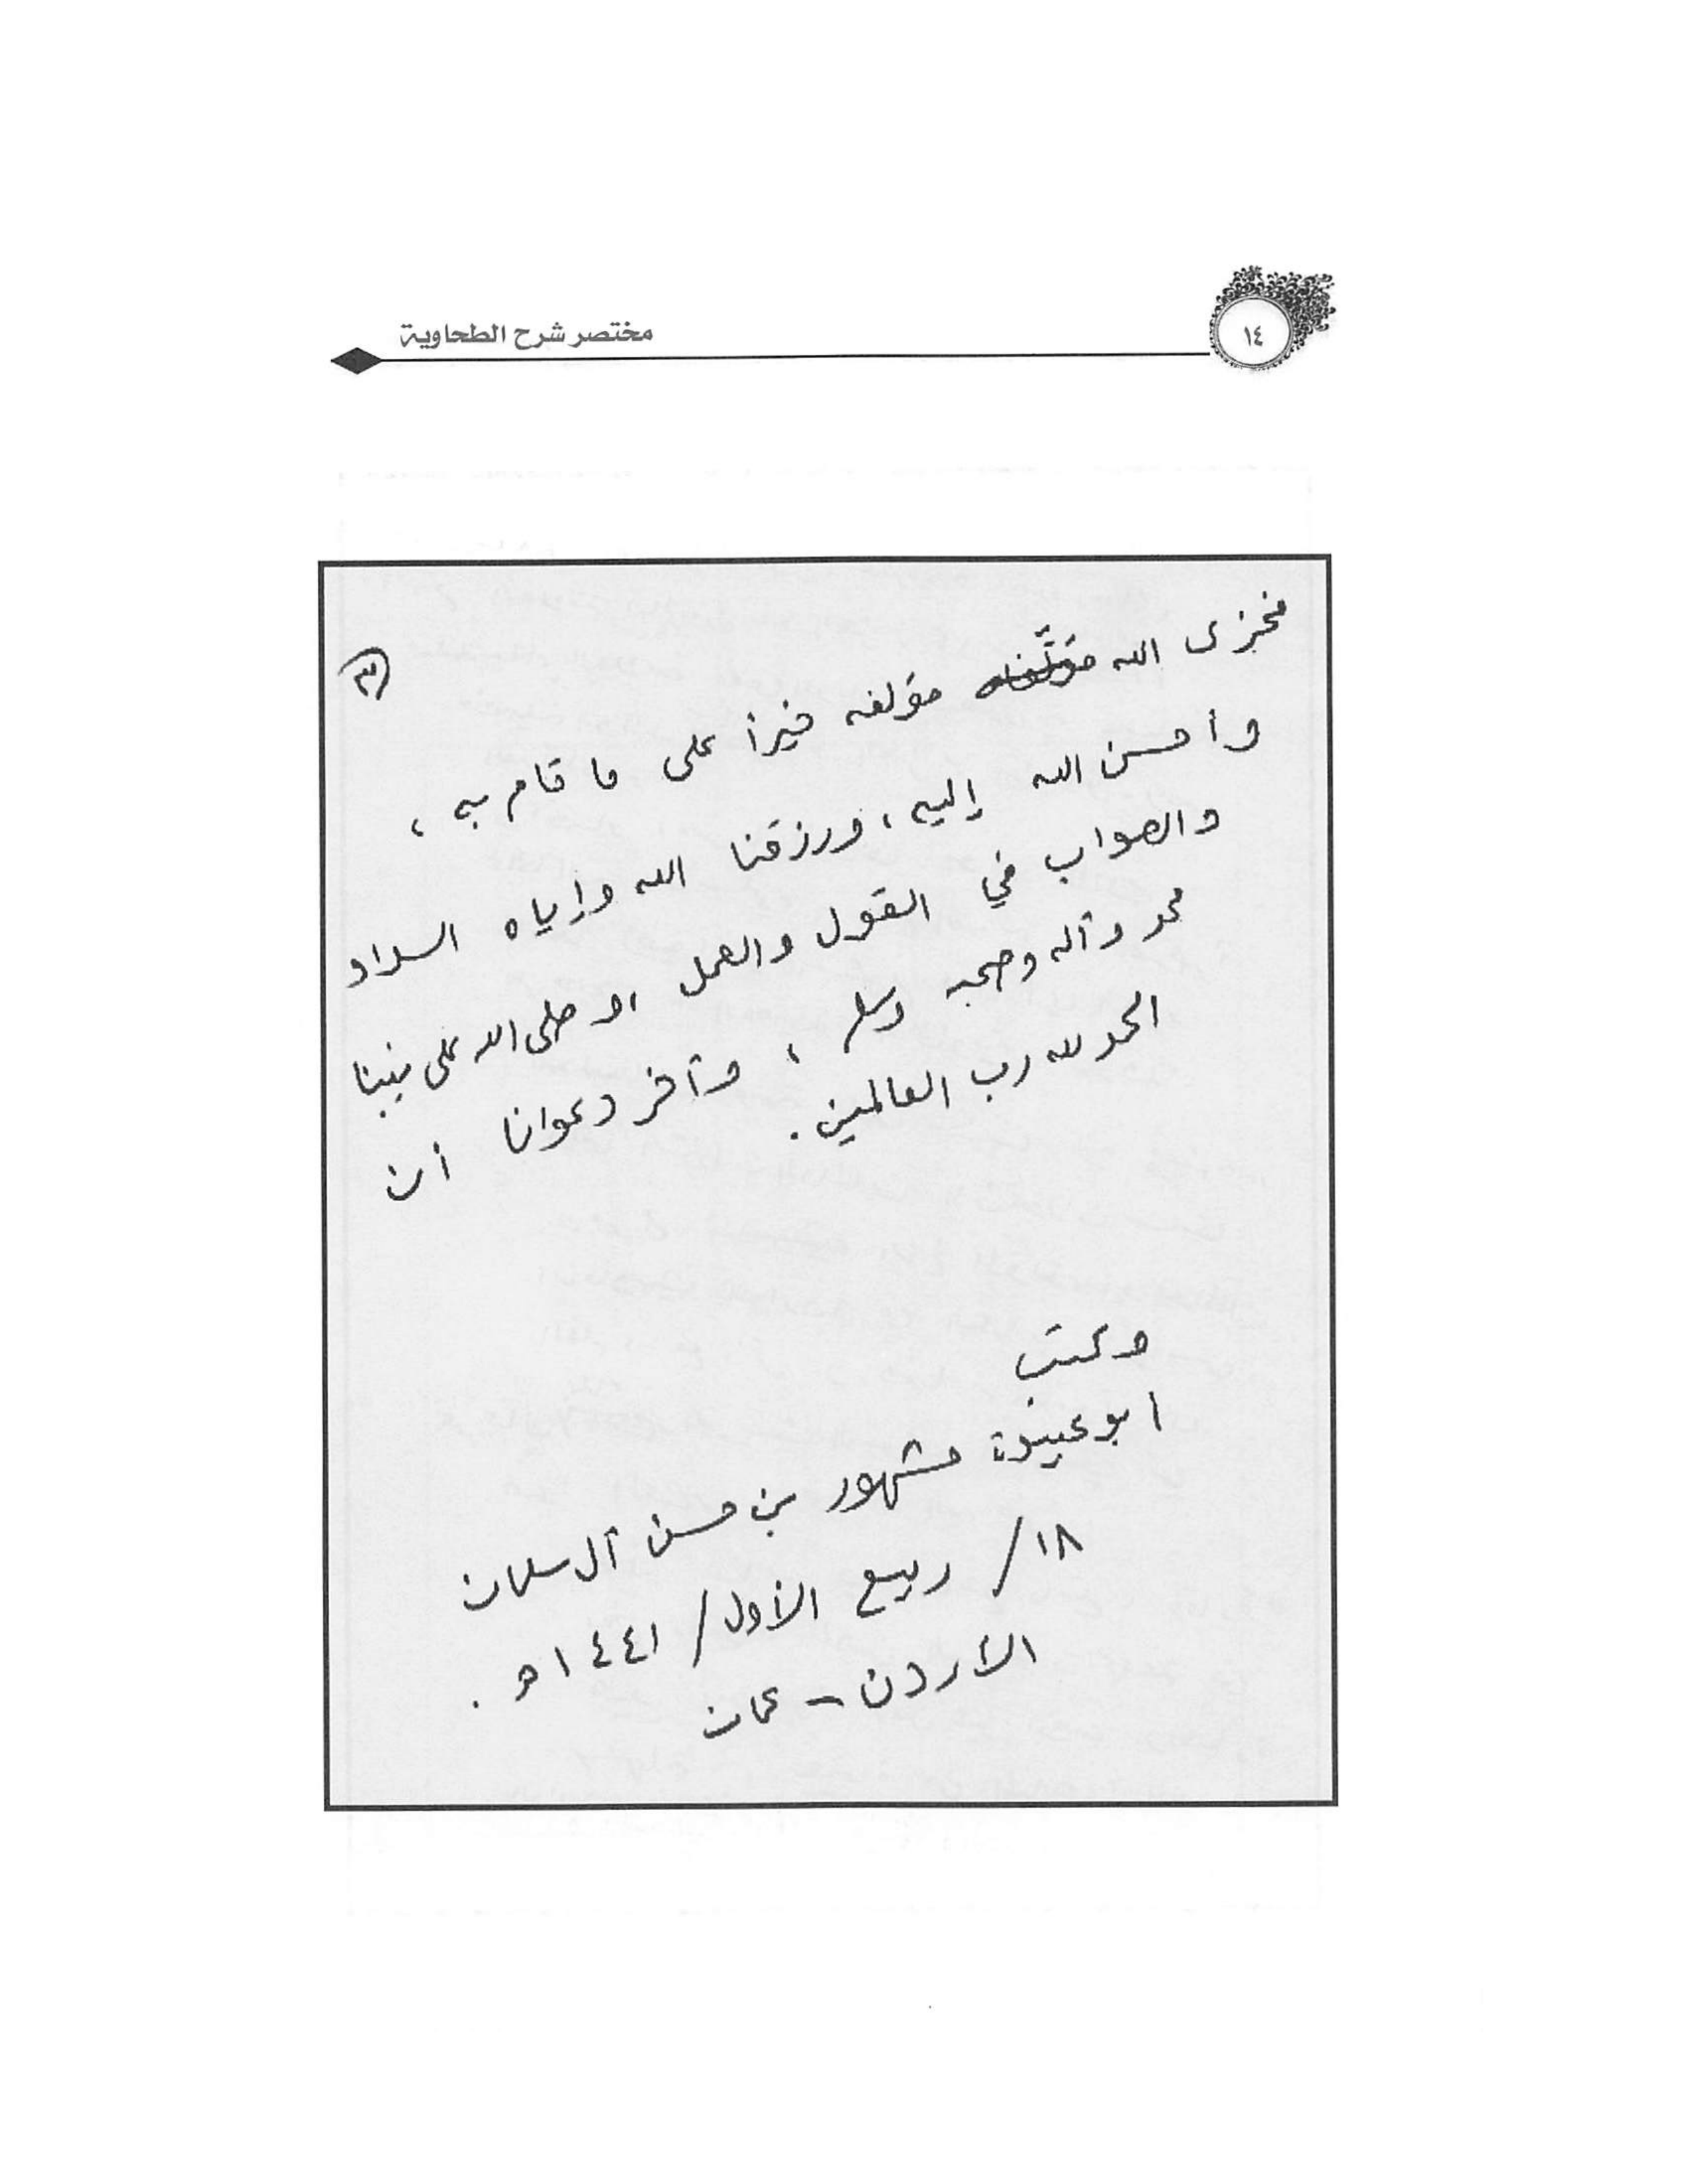 مختصر شرح الطحاوية
١٤
(٣)
فجزى الله مؤلفه مؤلفه خيراً على ما قام به ،
وأحسن الله إليه ، ورزقنا الله وإياه السداد
والصواب في القول والعمل ، وصلى الله على نبينا
محمد وآله وصحبه وسلم ، وآخر دعوانا أن
الحمد لله رب العالمين .
وكتب
ابو عبيدة مشهور بن حسن آل سلمان
١٨ / ربيع الأول / ١٤٤١ هـ .
الأردن - عمان